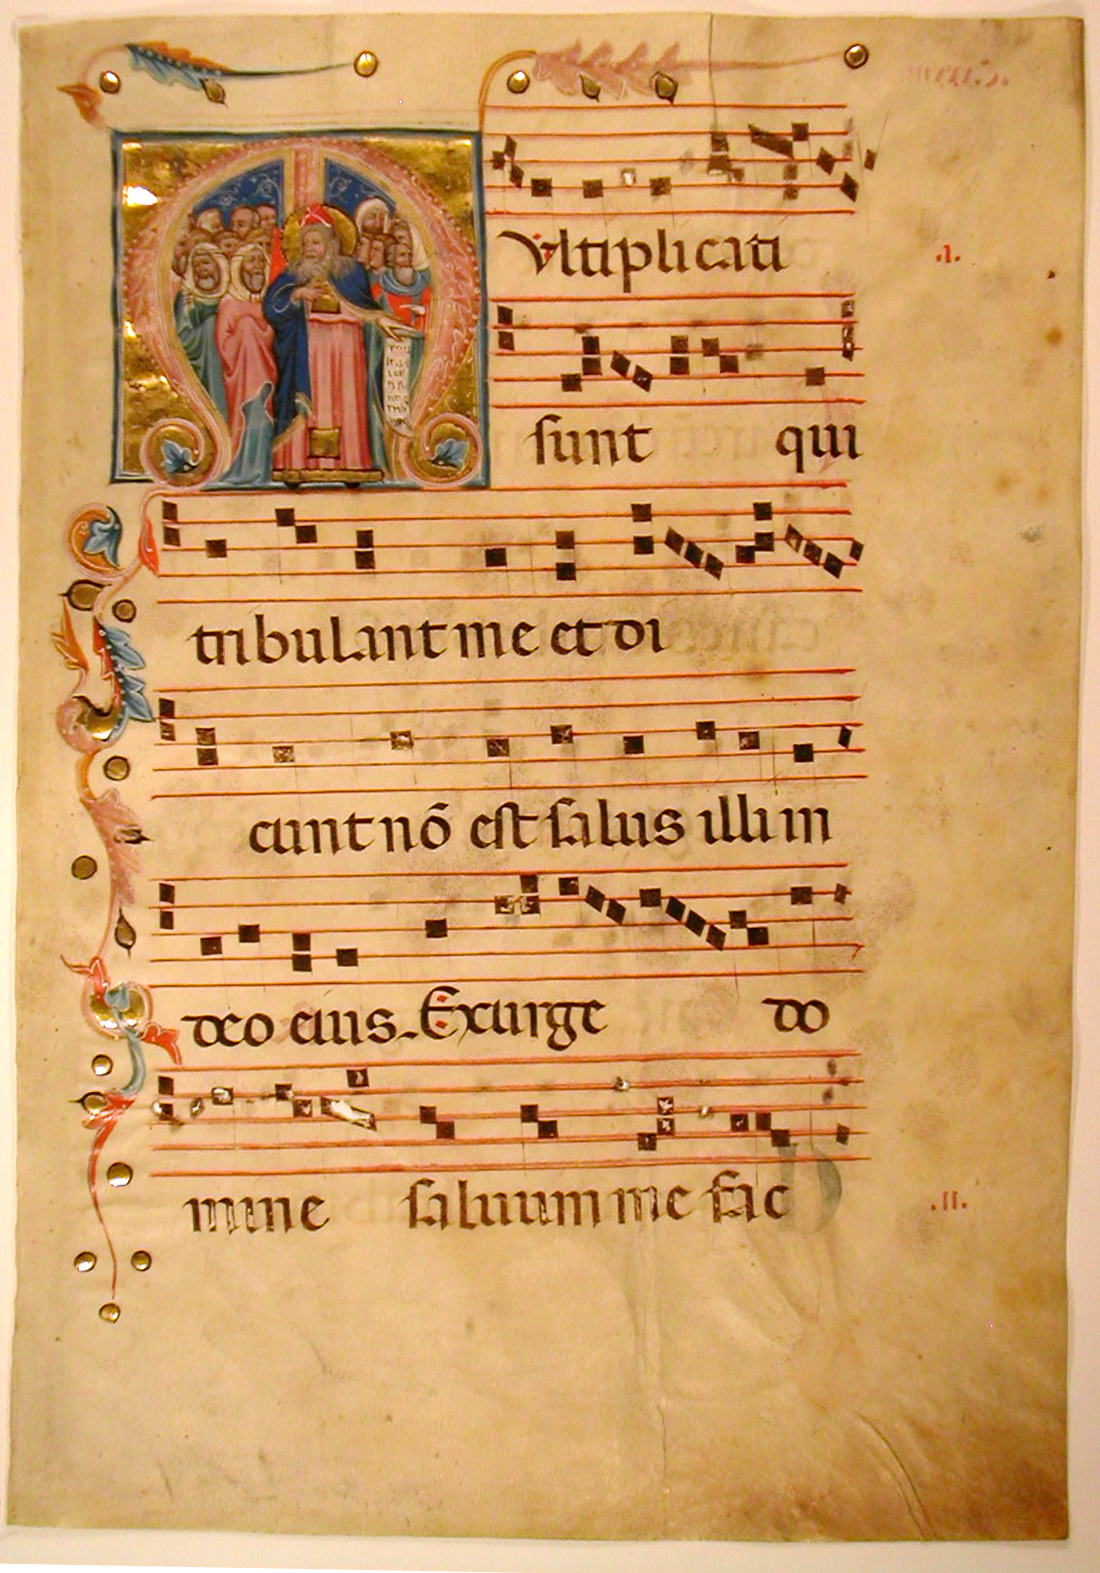 Multiplicati
sunt qui
tribulant me et di
cunt nō est salus illi in
deo eius. Exurge do
mine saluum me fac
.I.
.II.